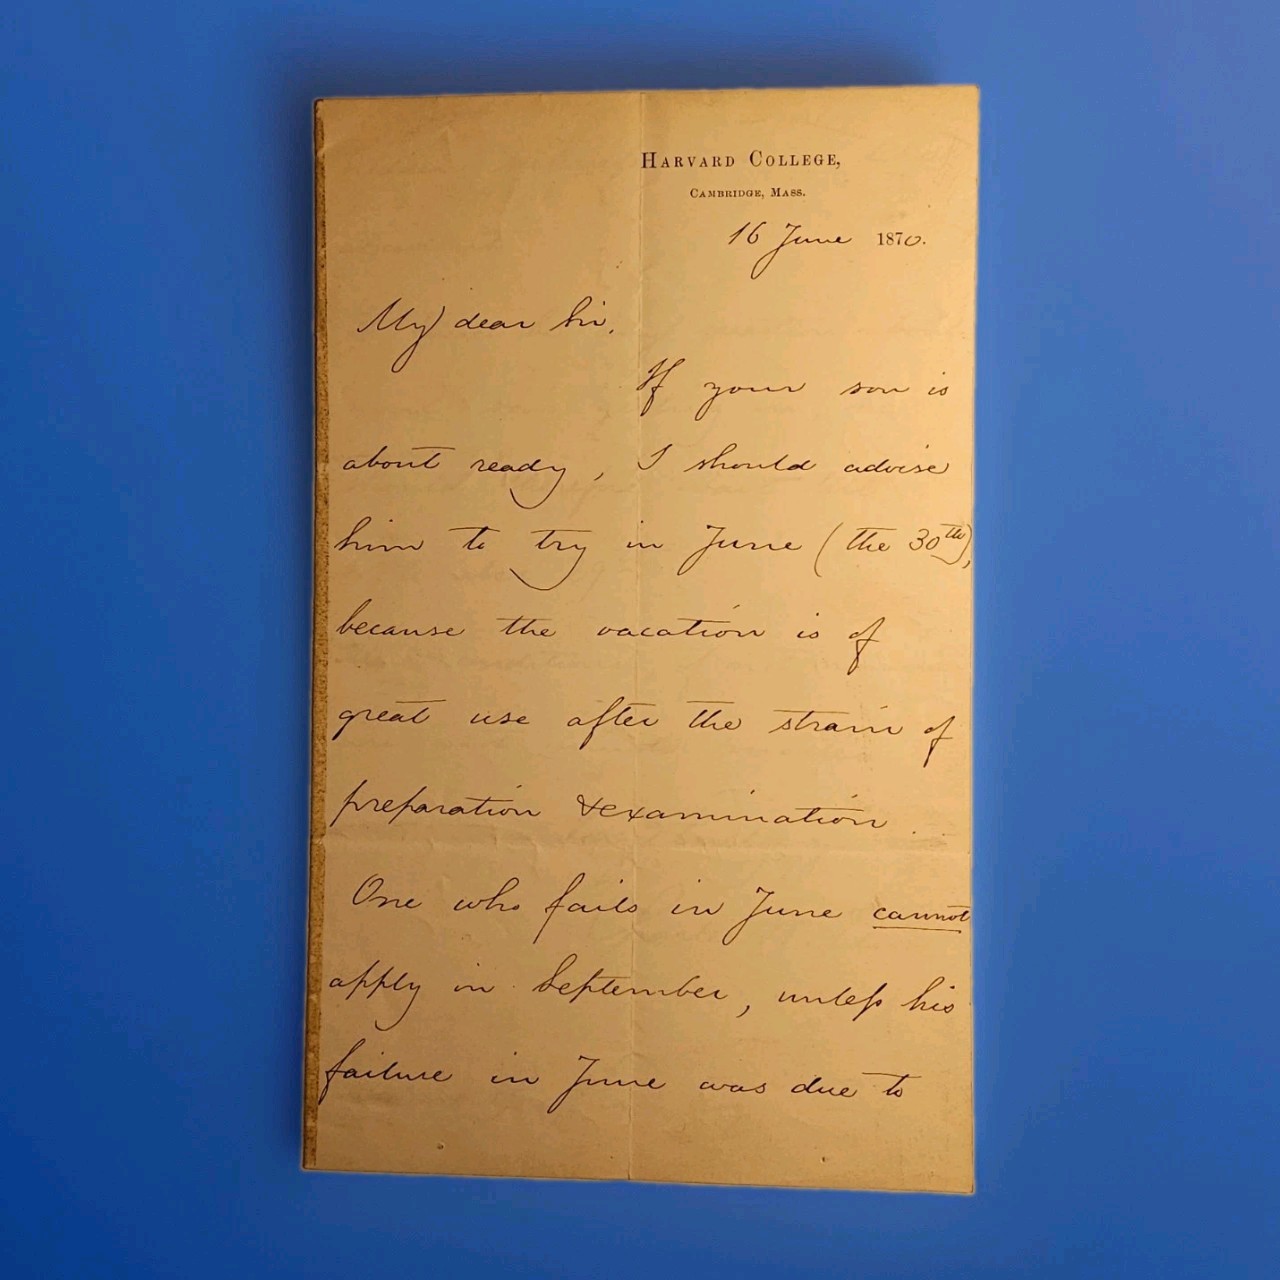 HARVARD COLLEGE,
CAMBRIDGE, MASS.
16 June 1870.
My dear Sir,
If your son is
about ready, I should advise
him to try in June (the 30th),
because the vacation is of
great use after the strain of
preparation & examination.
One who fails in June cannot
apply in September, unless his
failure in June was due to